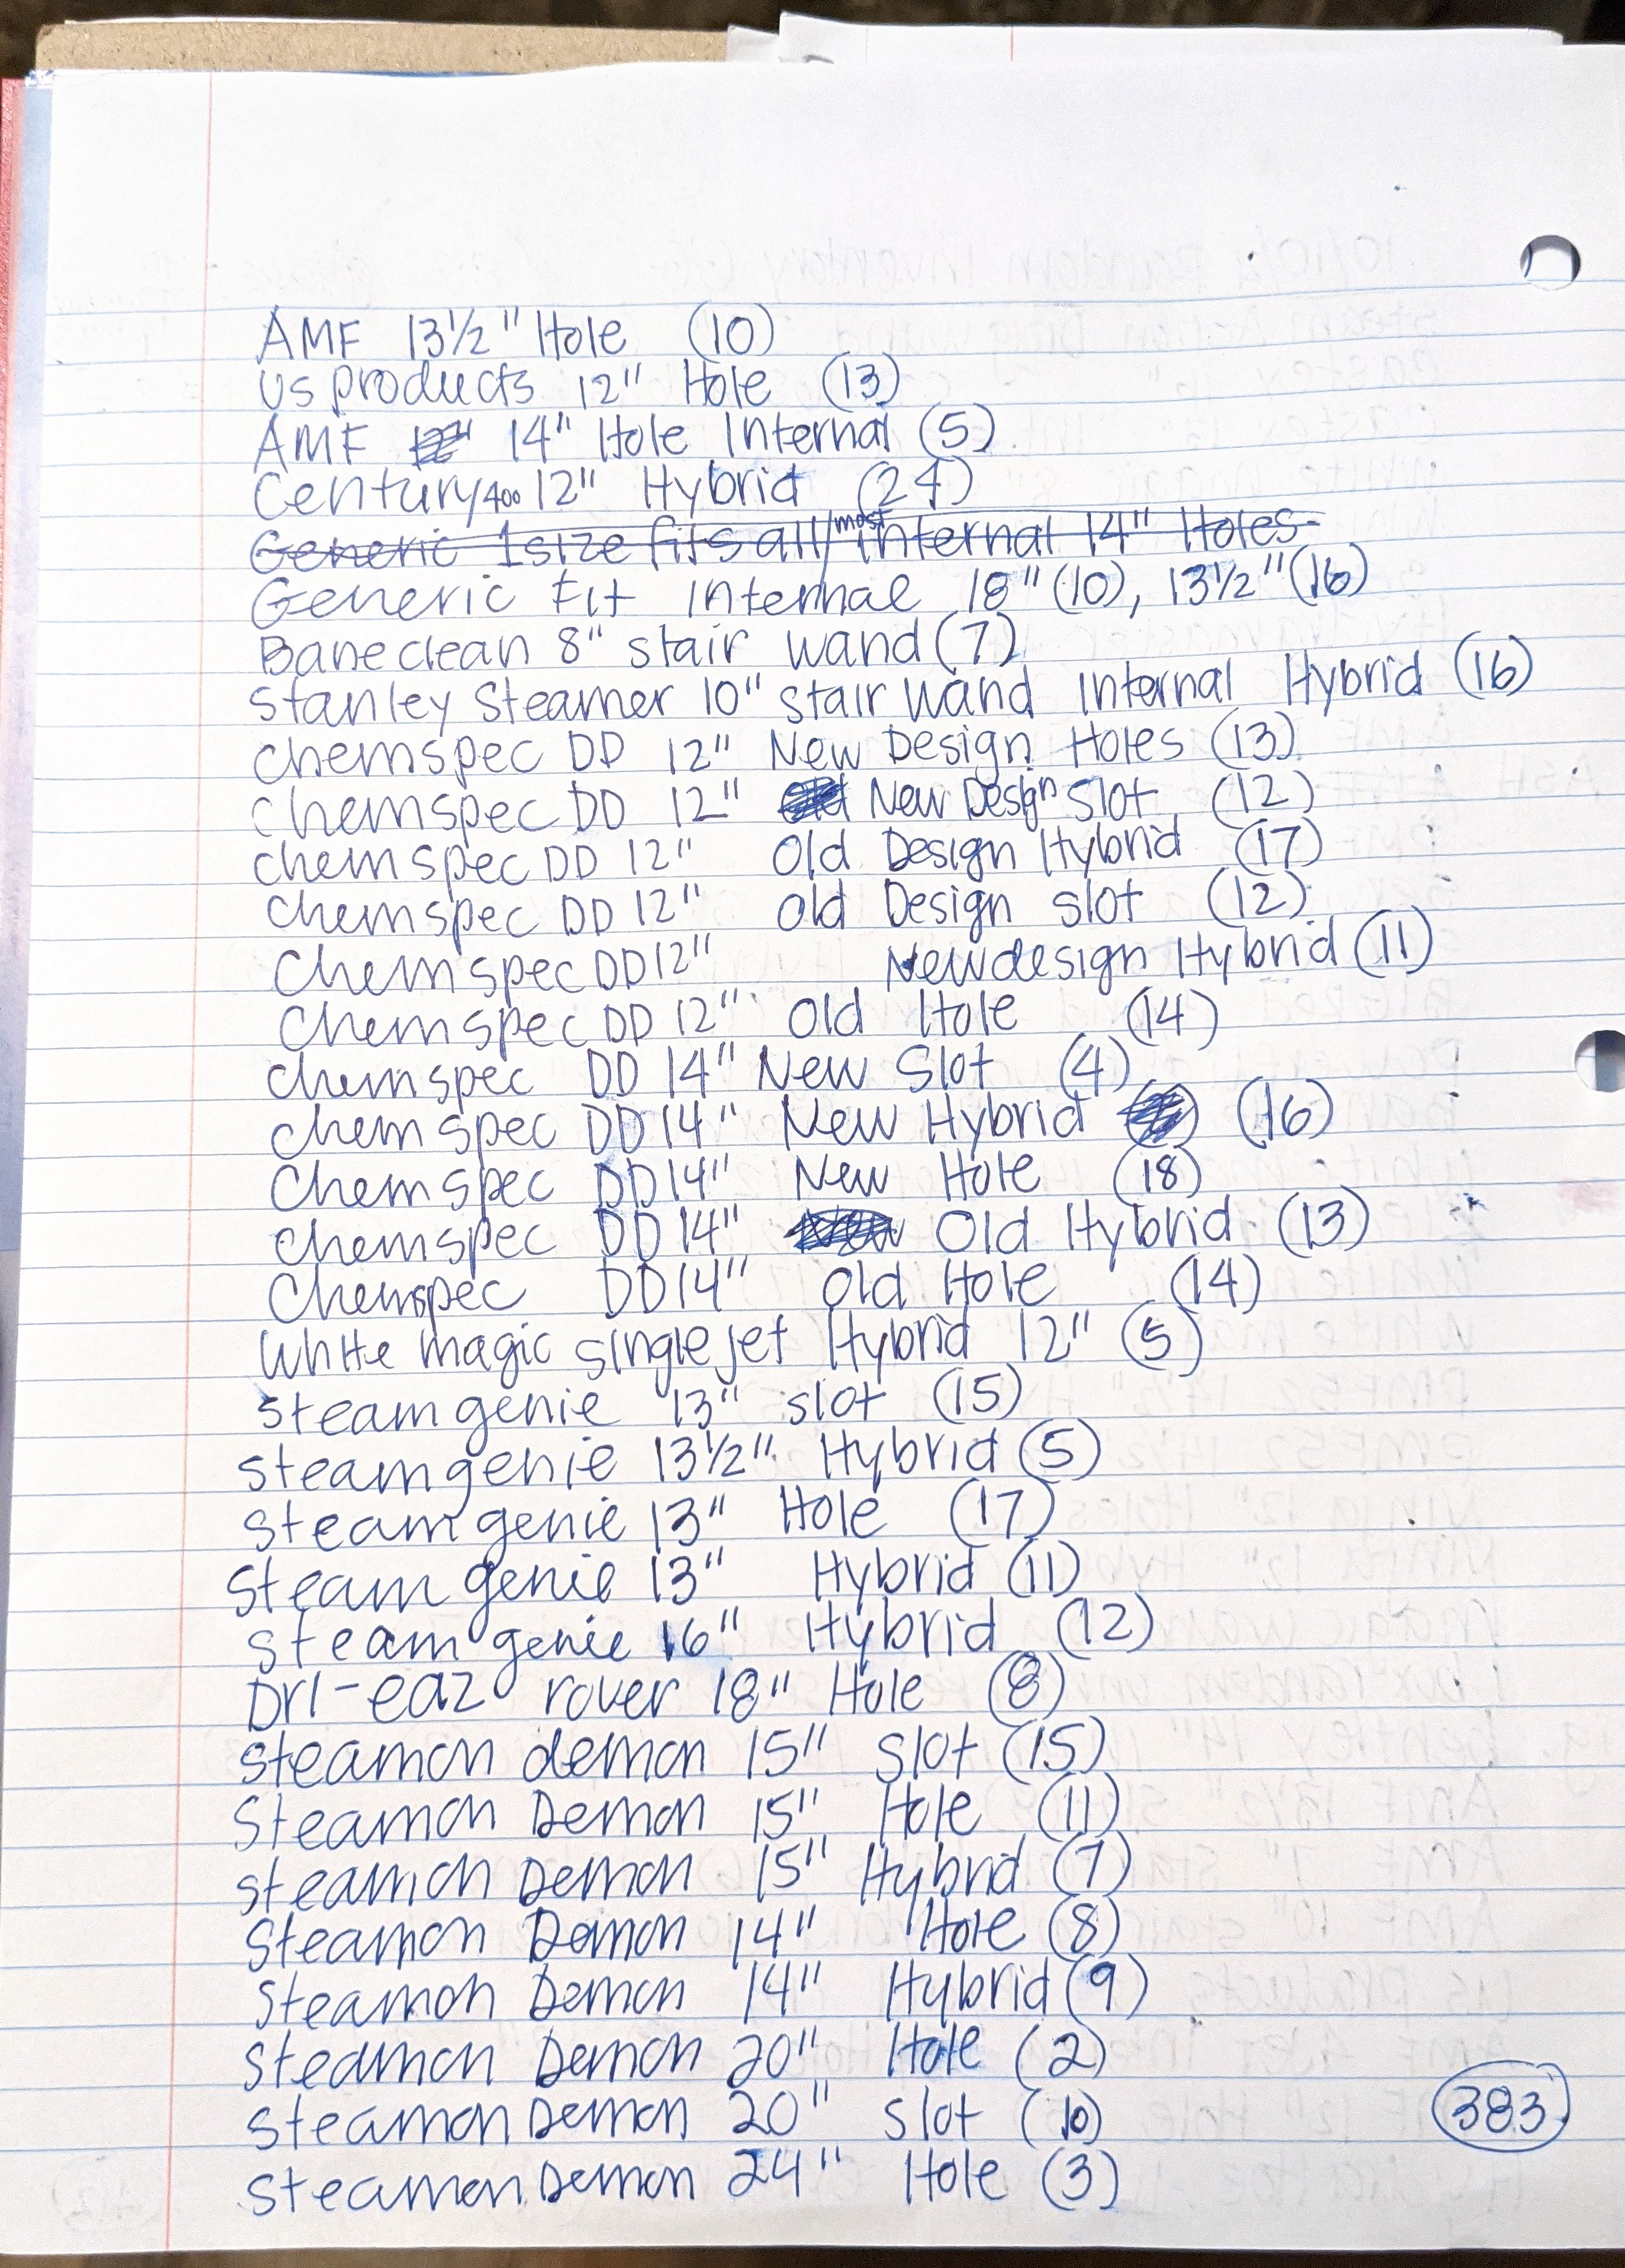 AMF 13½" Hole (10)
US products 12" Hole (13)
AMF 14" Hole Internal (5)
Century 400 12" Hybrid (24)
Generic 1 size fits all/most internal 14" Holes
Generic Fit Internal 18" (10), 13½" (16)
Baneclean 8" stair wand (7)
Stanley Steamer 10" stair wand Internal Hybrid (16)
Chemspec DD 12" New Design Holes (13)
Chemspec DD 12" New Design Slot (12)
Chemspec DD 12" Old Design Hybrid (17)
Chemspec DD 12" Old Design slot (12)
Chemspec DD 12" New design Hybrid (11)
Chemspec DD 12" Old Hole (14)
Chemspec DD 14" New Slot (4)
Chemspec DD 14" New Hybrid (16)
Chemspec DD 14" New Hole (18)
Chemspec DD 14" Old Hybrid (13)
Chemspec DD 14" Old Hole (14)
White magic single jet Hybrid 12" (5)
Steam genie 13" slot (15)
Steam genie 13½" Hybrid (5)
Steam genie 13" Hole (17)
Steam genie 13" Hybrid (11)
Steam genie 16" Hybrid (12)
Dri-eaz rover 18" Hole (8)
Steamon demon 15" Slot (15)
Steamon Demon 15" Hole (11)
Steamon Demon 15" Hybrid (7)
Steamon Demon 14" Hole (8)
Steamon Demon 14" Hybrid (9)
Steamon Demon 20" Hole (2)
Steamon Demon 20" Slot (10)
383
Steamon Demon 24" Hole (3)